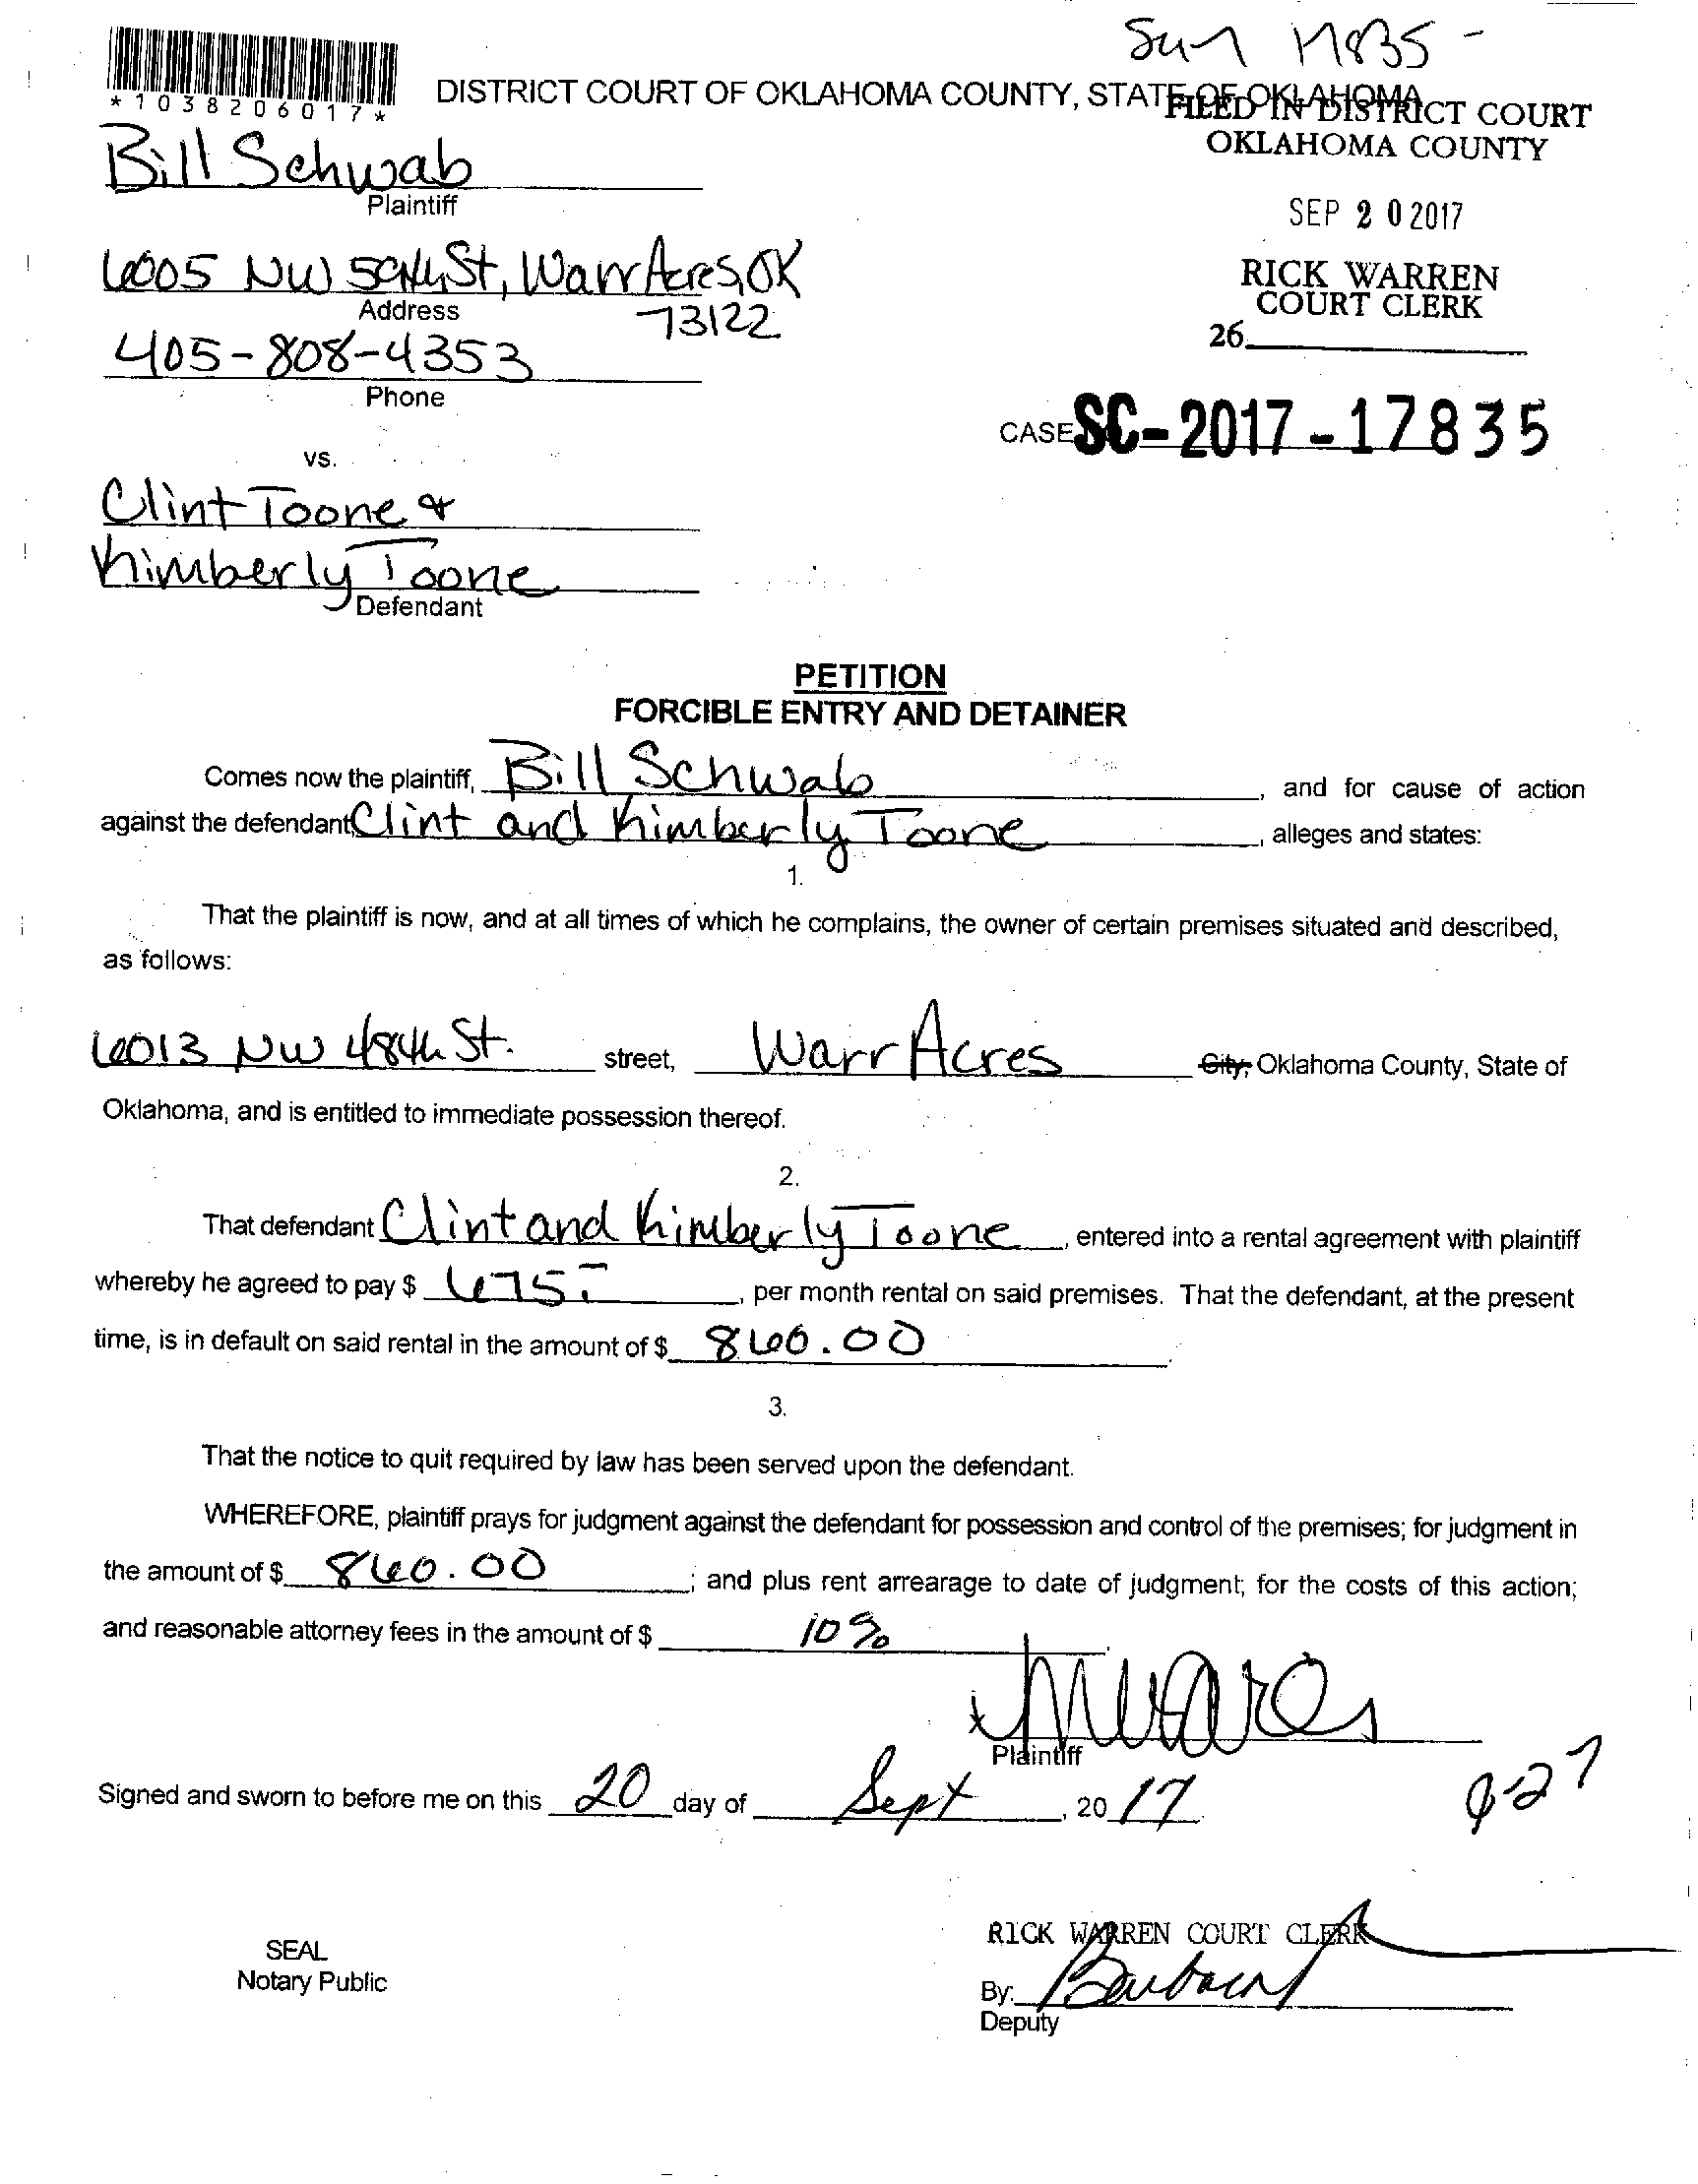 Sum 17835 -
*1038206017*
DISTRICT COURT OF OKLAHOMA COUNTY, STATE OF OKLAHOMA
FILED IN DISTRICT COURT
OKLAHOMA COUNTY
Bill Schwab
Plaintiff
SEP 20 2017
6005 NW 50th St, Warr Acres, OK
Address
73122
RICK WARREN
COURT CLERK
26
405-808-4353
Phone
CASE SC-2017-17835
vs.
Clint Toone &
Kimberly Toone
Defendant
PETITION
FORCIBLE ENTRY AND DETAINER
Comes now the plaintiff, Bill Schwab, and for cause of action
against the defendant Clint and Kimberly Toone, alleges and states:
1.
That the plaintiff is now, and at all times of which he complains, the owner of certain premises situated and described,
as follows:
6013 NW 48th St. street, Warr Acres City, Oklahoma County, State of
Oklahoma, and is entitled to immediate possession thereof.
2.
That defendant Clint and Kimberly Toone, entered into a rental agreement with plaintiff
whereby he agreed to pay $ 675.-, per month rental on said premises. That the defendant, at the present
time, is in default on said rental in the amount of $ 860.00.
3.
That the notice to quit required by law has been served upon the defendant.
WHEREFORE, plaintiff prays for judgment against the defendant for possession and control of the premises; for judgment in
the amount of $ 860.00; and plus rent arrearage to date of judgment; for the costs of this action;
and reasonable attorney fees in the amount of $ 10%.
x
Plaintiff
Signed and sworn to before me on this 20 day of Sept, 20 17.
9-27
RICK WARREN COURT CLERK
SEAL
Notary Public
By:
Deputy